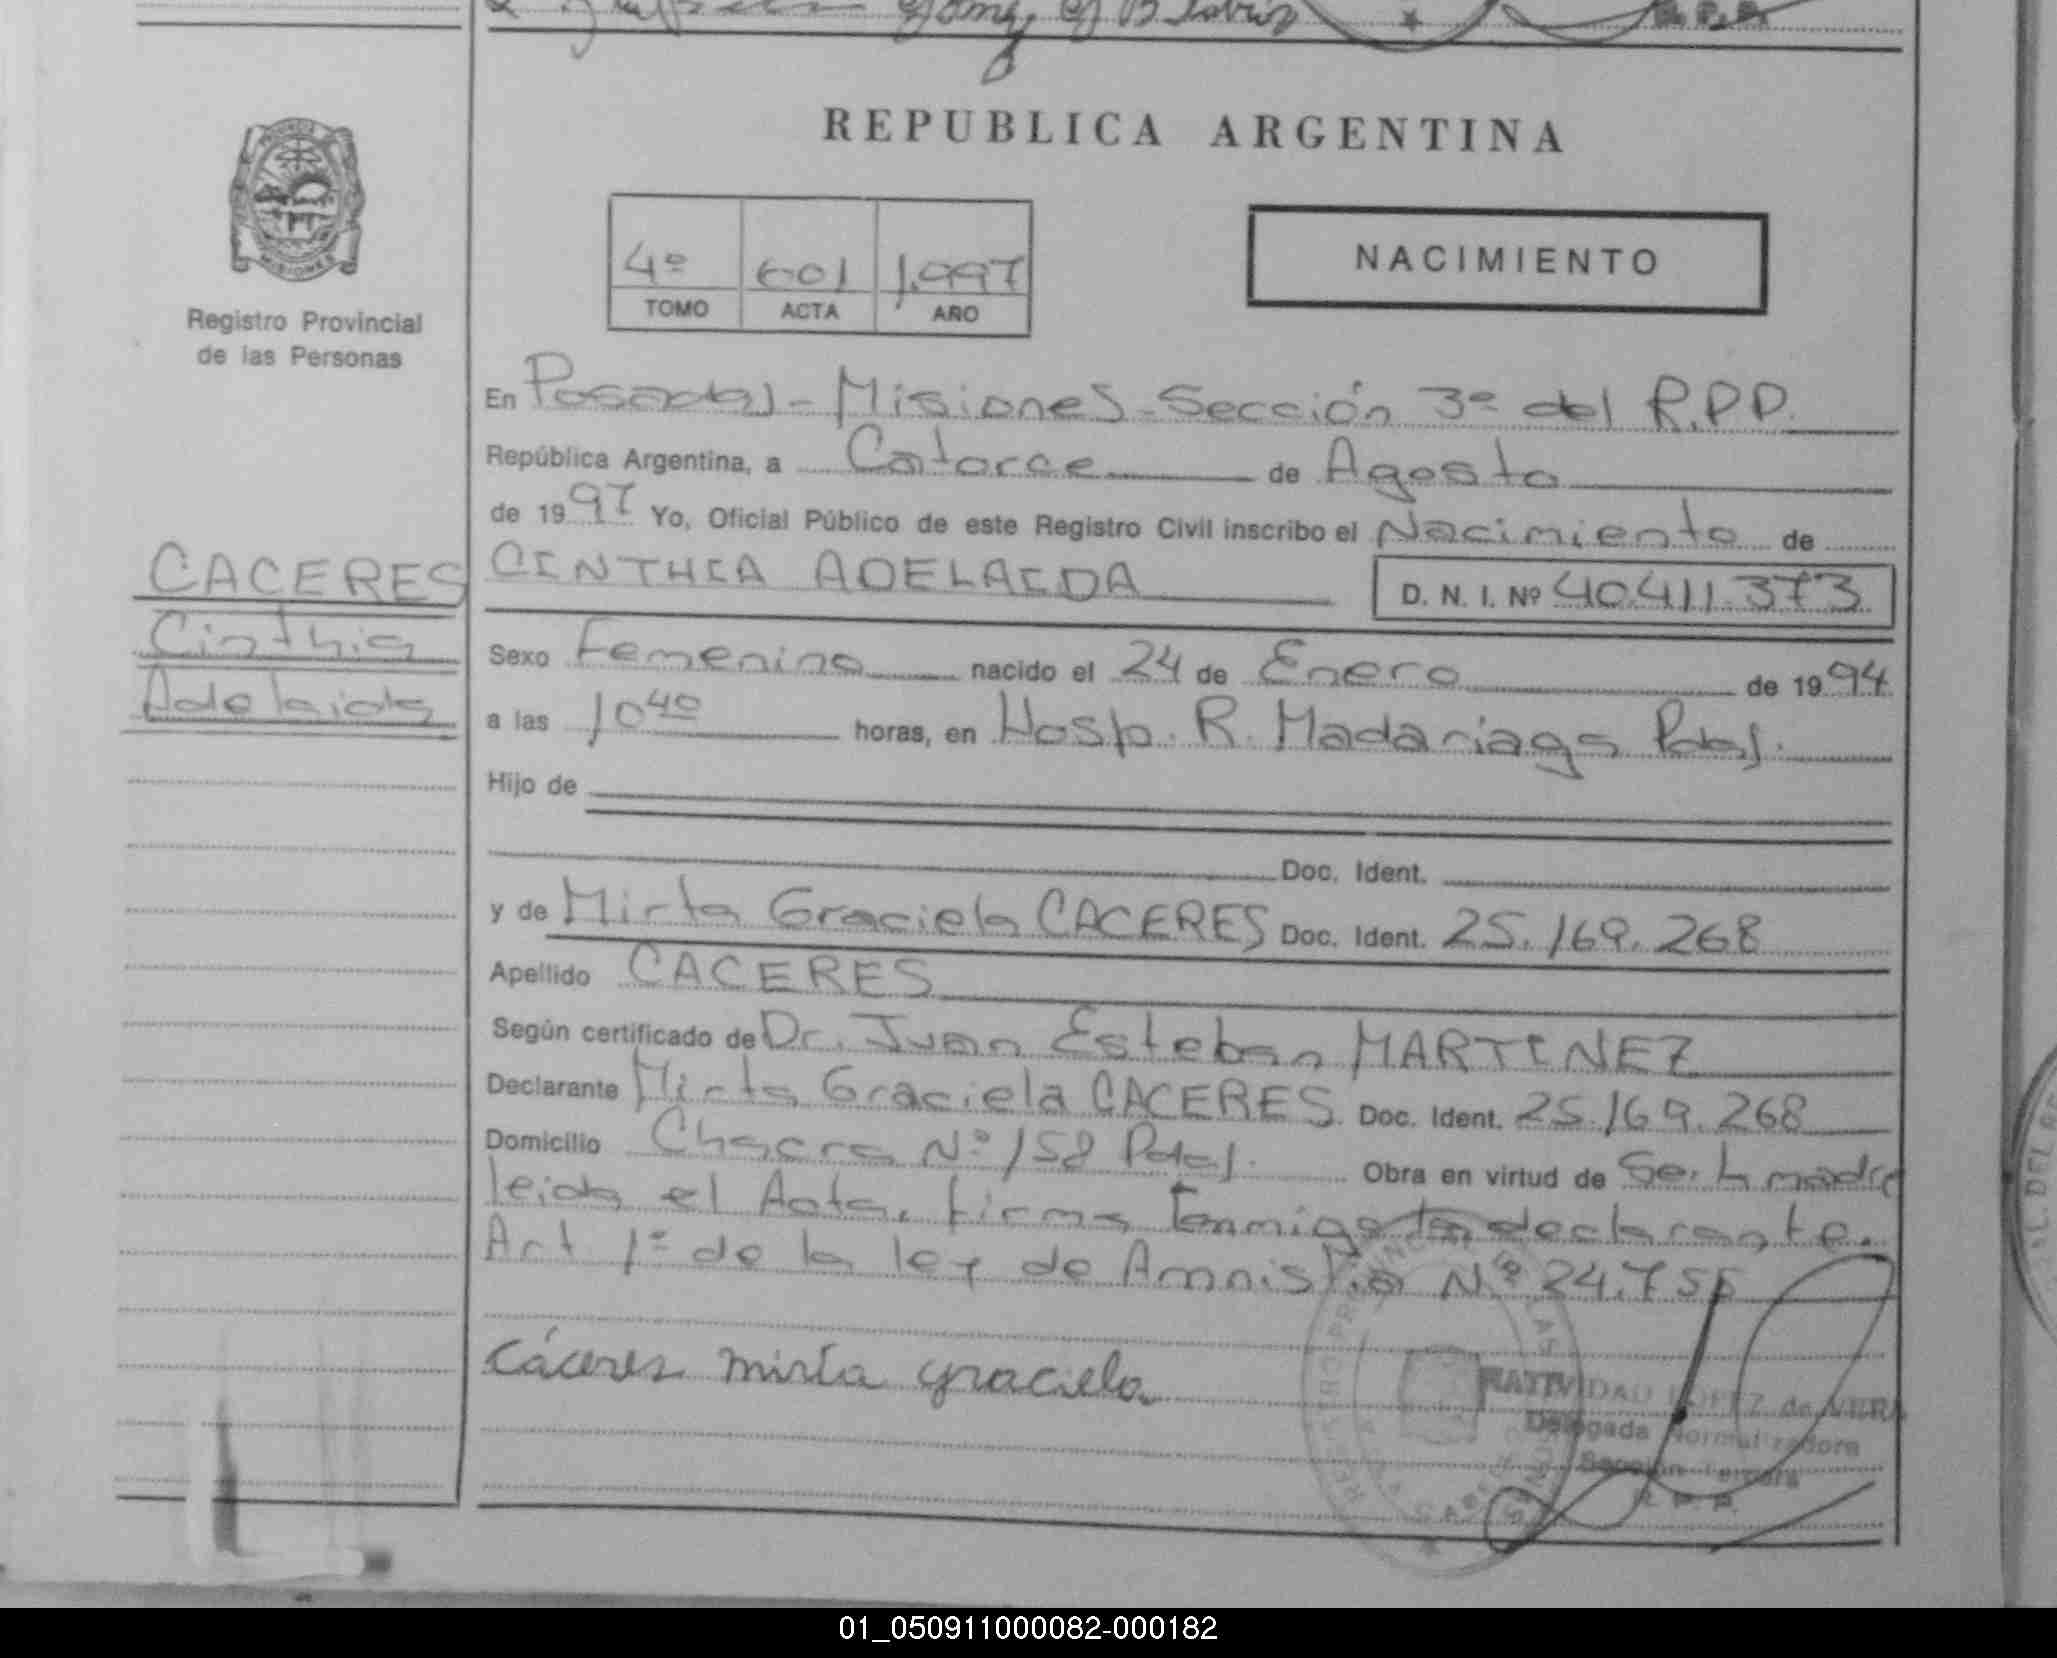 REPUBLICA ARGENTINA
PROVINCIA
MISIONES
Registro Provincial
de las Personas
4º 601 1.997
TOMO ACTA AÑO
NACIMIENTO
En Posadas - Misiones - Sección 3ª del R.P.P.
República Argentina, a Catorce de Agosto
de 1997 Yo, Oficial Público de este Registro Civil inscribo el Nacimiento de
CACERES
Cinthia
Adelaida
CINTHIA ADELAIDA D. N. I. Nº 40.411.373
Sexo Femenino nacido el 24 de Enero de 1994
a las 10 40 horas, en Hosp. R. Madariaga Pdas.
Hijo de
Doc. Ident.
y de Mirta Graciela CACERES Doc. Ident. 25.169.268
Apellido CACERES
Según certificado de Dr. Juan Esteban MARTINEZ
Declarante Mirta Graciela CACERES Doc. Ident. 25.169.268
Domicilio Chacra Nº 158 Pdas. Obra en virtud de Ser la madre
leida el Acta, firma conmigo la declarante.
Art 1º de la ley de Amnistia Nº 24.755
Cáceres Mirta Graciela
NATIVIDAD LOPEZ de VERA
Delegada Normalizadora
Sección Tercera
R. P. P.
01_050911000082-000182